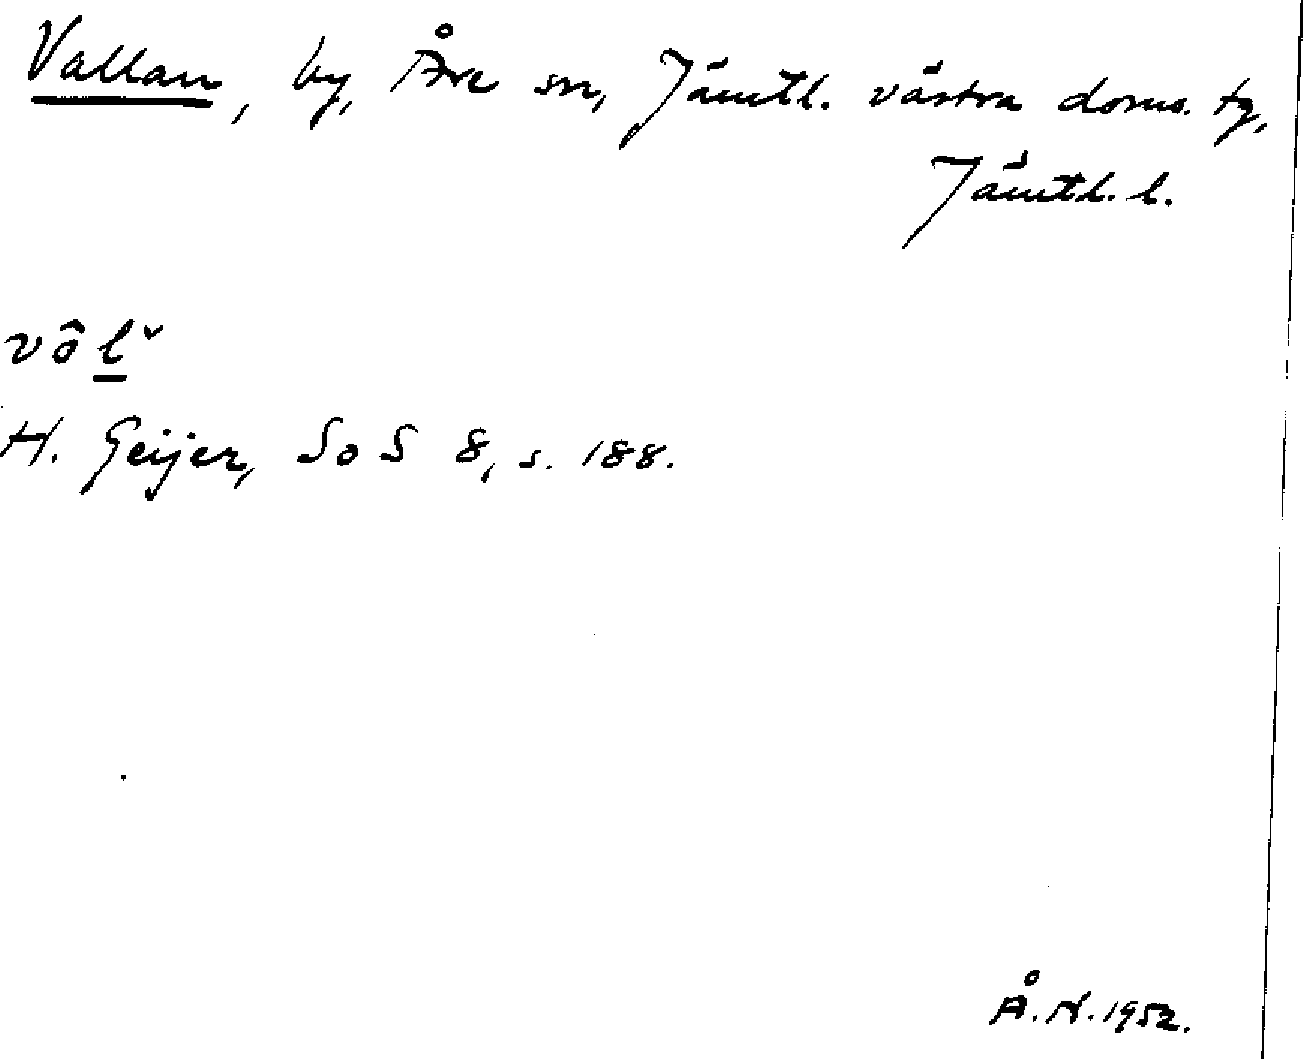 Vallan, by, Åre sn, Jämtl. västra doms. tg,
Jämtl. l.
vôlˇ
H. Geijer, SoS 8, s. 188.
Å.N. 1952.